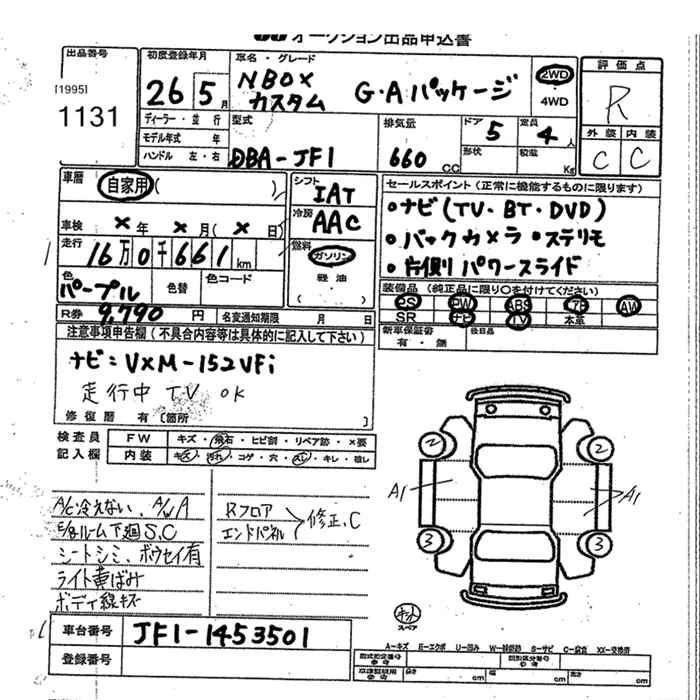 オークション出品申込書
出品番号
[1995]
1131
初度登録年月
26 5月
ディーラー・並行
モデル年式 年
ハンドル 左・右
車名・グレード
NBOX
カスタム G・Aパッケージ
2WD
4WD
型式
DBA-JF1
排気量
660 CC
ドア
5
形状
定員
4人
積載
Kg
評価点
R
外装 内装
C C
車歴
自家用( )
車検 ×年 ×月(×日)
走行 16万0千661km
色 パープル
色替
色コード
R券 9,790円 名変通知期限 月 日
シフト
IAT
冷房
AAC
燃料
ガソリン
軽油
セールスポイント(正常に機能するものに限ります)
・ナビ(TV・BT・DVD)
・バックカメラ ・ステリモ
・片側パワースライド
装備品(純正品に限り○を付けてください)
PS PW ABS AB AW
SR ナビ TV 本革
新車保証書
有・無
後日品
注意事項申告欄(不具合内容等は具体的に記入して下さい)
ナビ:VXM-152VFi
走行中 TV OK
修復歴 有〔箇所
検査員
記入欄
FW キズ・飛石・ヒビ割・リペア跡・×要
内装 キズ・汚れ・コゲ・穴・スレ・キレ・破レ
A/C冷えない、A/W A
下廻S.C
シートシミ、ボウセイ有
ライト黄ばみ
ボディ線キズ
Rフロア
エンドパネル
修正、C
2 2
A1 A1
3 3
キット
スペア
A-キズ E-エクボ U-凹み W-補修跡 S-サビ C-腐食 XX-交換済
車台番号 JF1-1453501
登録番号
型式指定番号
参考
類別区分番号
参考
車両寸法
参考
長さ cm 幅 cm 高さ cm